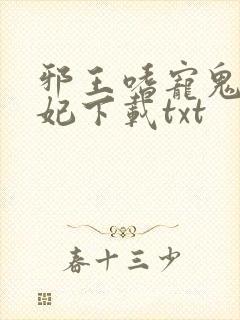 邪王嗜寵鬼
妃下載txt
春十三少